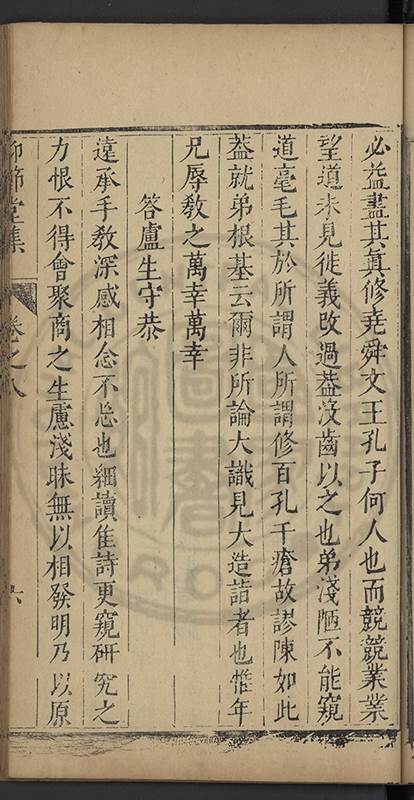 必益盡其眞修堯舜文王孔子何人也而兢兢業業
望道未見徙義改過葢沒齒以之也弟淺陋不能窺
道毫毛其於所謂人所謂修百孔千瘡故謬陳如此
葢就弟根基云爾非所論大識見大造詣者也惟年
兄辱敎之萬幸萬幸
答盧生守恭
遠承手敎深感相念不忘也細讀佳詩更窺硏究之
力恨不得會聚商之生慮淺昧無以相發明乃以原
節堂集
卷之八
六